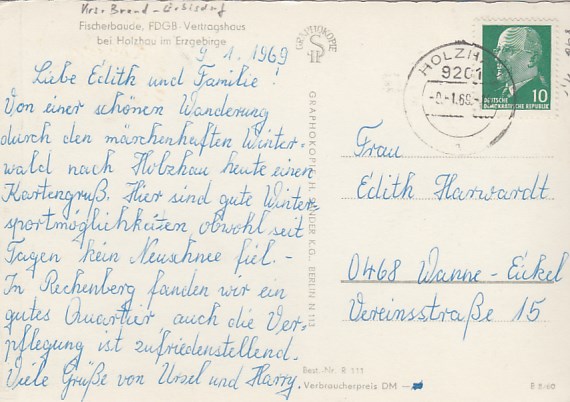 Krs. Brand-Erbisdorf
Fischerbaude, FDGB-Vertragshaus
bei Holzhau im Erzgebirge
9.1.1969
Liebe Edith und Familie!
Von einer schönen Wanderung
durch den märchenhaften Winter-
wald nach Holzhau heute einen
Kartengruß. Hier sind gute Winter-
sportmöglichkeiten obwohl seit
Tagen kein Neuschnee fiel. -
In Rechenberg fanden wir ein
gutes Quartier auch die Ver-
pflegung ist zufriedenstellend.
Viele Grüße von Ursel und Harry.
GRAPHOKOPIE
GRAPHOKOPIE H. SANDER K.G., BERLIN N 113
HOLZHAU
9201
-9.-1.69.
DEUTSCHE
DEMOKRATISCHE REPUBLIK
10
Frau
Edith Harwardt
0468 Wanne-Eickel
Vereinsstraße 15
Best.-Nr. R 111
Verbraucherpreis DM